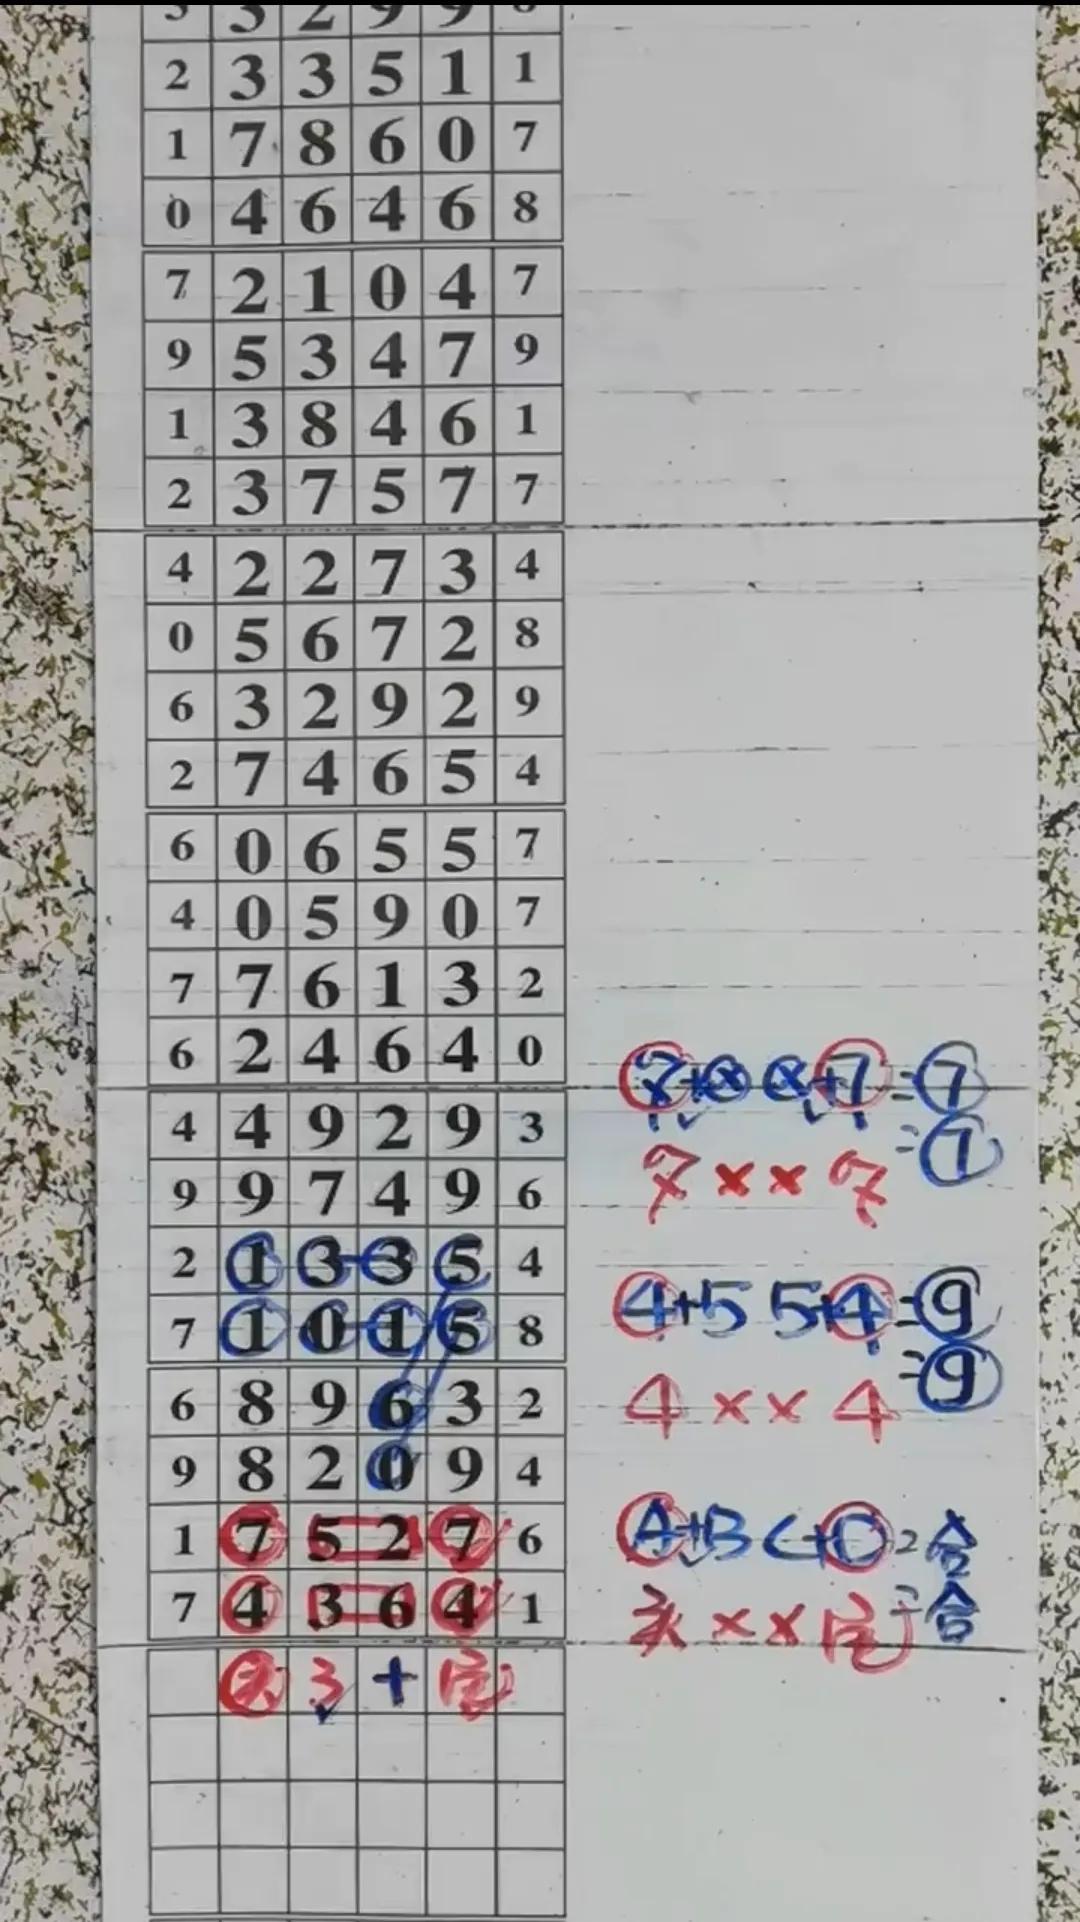 3 2 9 9
2 3 3 5 1 1
1 7 8 6 0 7
0 4 6 4 6 8
7 2 1 0 4 7
9 5 3 4 7 9
1 3 8 4 6 1
2 3 7 5 7 7
4 2 2 7 3 4
0 5 6 7 2 8
6 3 2 9 2 9
2 7 4 6 5 4
6 0 6 5 5 7
4 0 5 9 0 7
7 7 6 1 3 2
6 2 4 6 4 0
4 4 9 2 9 3
9 9 7 4 9 6
2 1 3 3 5 4
7 1 0 1 5 8
6 8 9 6 3 2
9 8 2 0 9 4
1 7 5 2 7 6
7 4 3 6 4 1
3 +
=7
7 × × 7
4+5 5+4=9
=9
4 × × 4
A+B C+D=合
头 × × =合